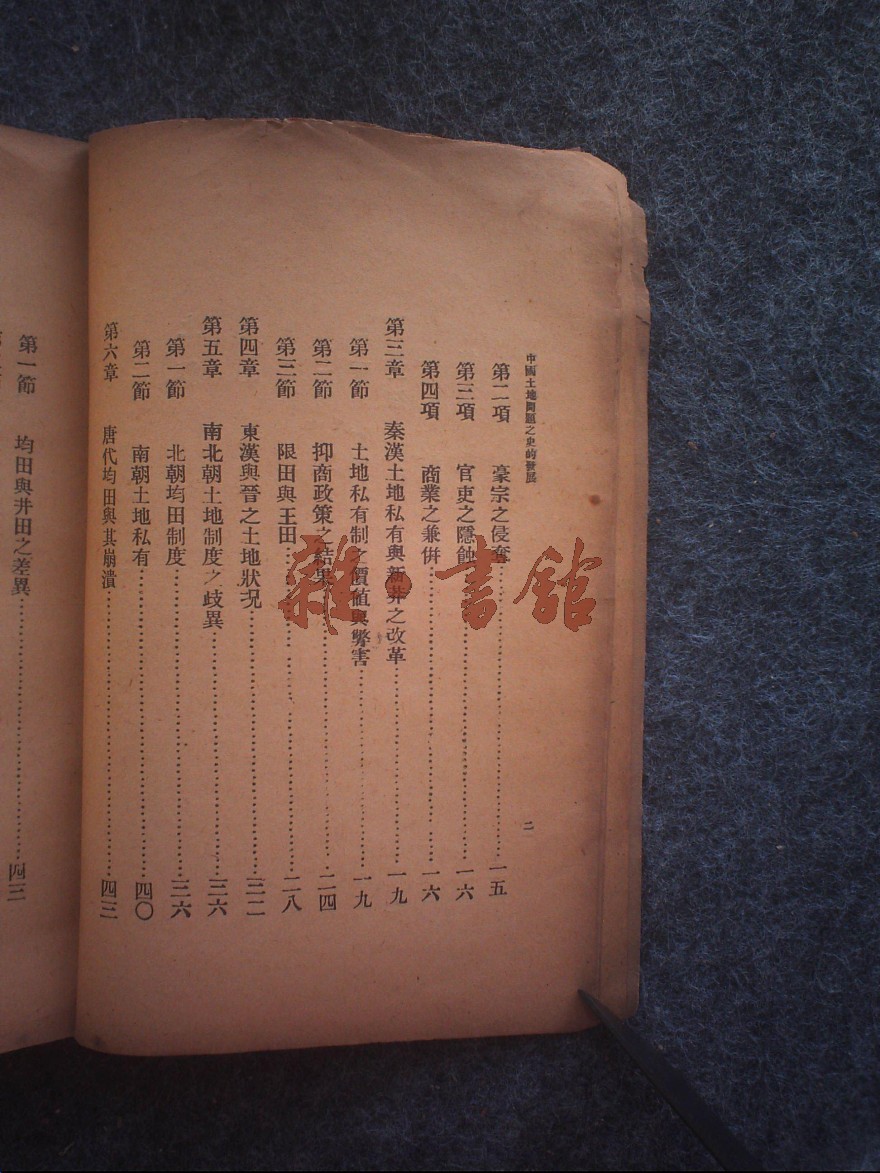 中國土地問題之史的發展
二
第二項 豪宗之侵奪……一五
第三項 官吏之隱蝕……一六
第四項 商業之兼併……一六
第三章 秦漢土地私有與新莽之改革……一九
第一節 土地私有制之價值與弊害……一九
第二節 抑商政策之結果……二四
第三節 限田與王田……二八
第四章 東漢與晉之土地狀況……三二
第五章 南北朝土地制度之歧異……三六
第一節 北朝均田制度……三六
第二節 南朝土地私有……四〇
第六章 唐代均田與其崩潰……四三
第一節 均田與井田之差異……四三
雜·書館